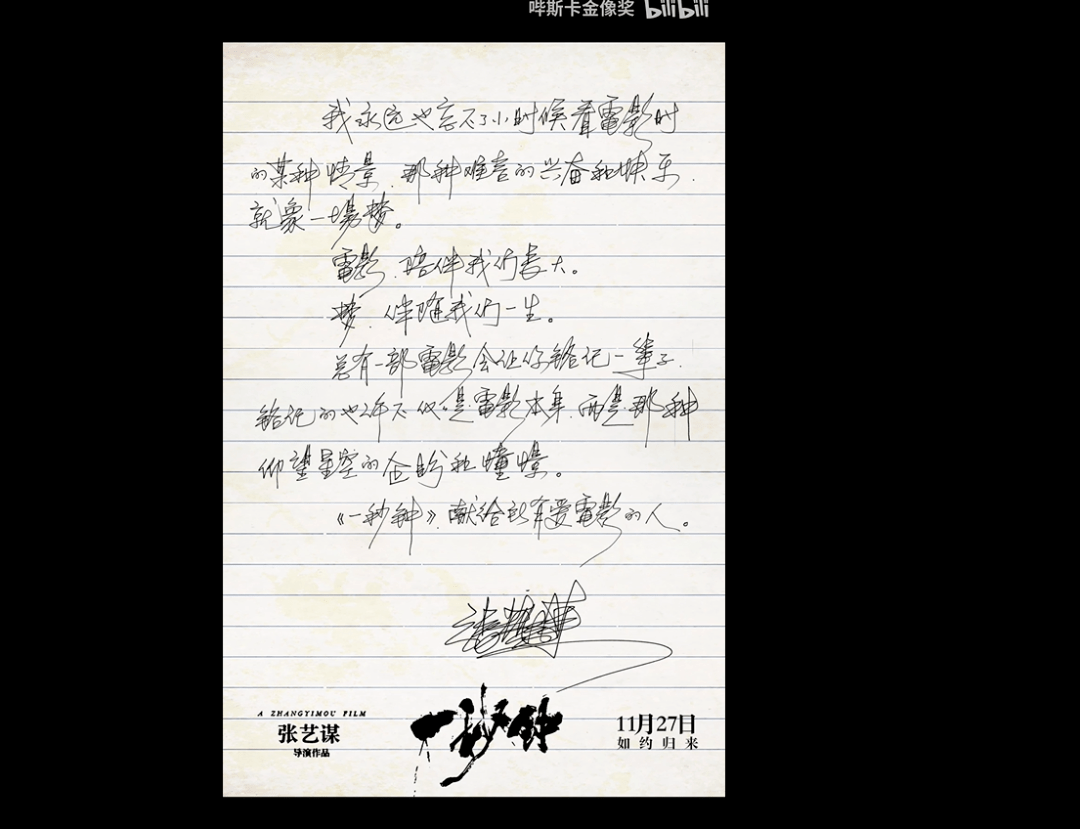 哔斯卡金像奖 bilibili
我永远也忘不了小时候看電影时
的某种情景,那种难言的兴奋和快乐,
就象一場梦。
電影,陪伴我们長大。
梦,伴随我们一生。
总有一部電影会让你铭记一辈子,
铭记的也许不仅是電影本身,而是那种
仰望星空的企盼和憧憬。
《一秒钟》,献给所有爱電影的人。
A ZHANGYIMOU FILM
张艺谋
导演作品
一秒钟
11月27日
如约归来